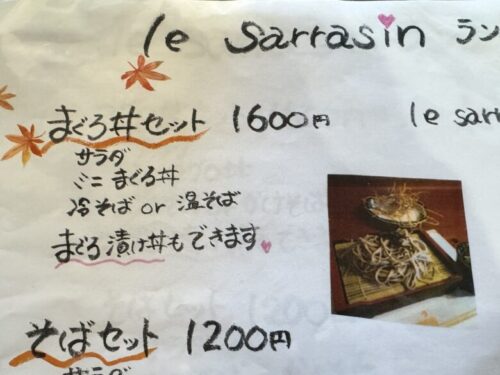 le sarrasin ラン
まぐろ丼セット 1600円
le sarr
サラダ
ミニ まぐろ丼
冷そば or 温そば
まぐろ漬け丼もできます
そばセット 1200円
サラダ